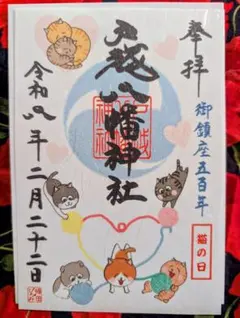 奉拝
御鎮座五百年
猫の日
戸越八幡神社
令和八年二月二十二日